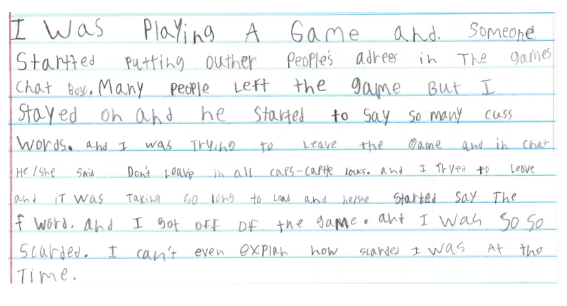 I Was Playing A Game and. Someone
Startted putting outher people's adrees in The games
Chat Box. Many people Left the game But I
Stayed on and he started to say so many cuss
Words. and I was Trying to Leave the Game and in chat
He/she said Don't Leave in all caps-capttle locks. and I Tryed to Leave
and iT was Taking so long to Load and he/she Started Say The
f word. and I got off of the game. ant I was so so
Scarded. I can't even explan how scarded I was At the
Time.